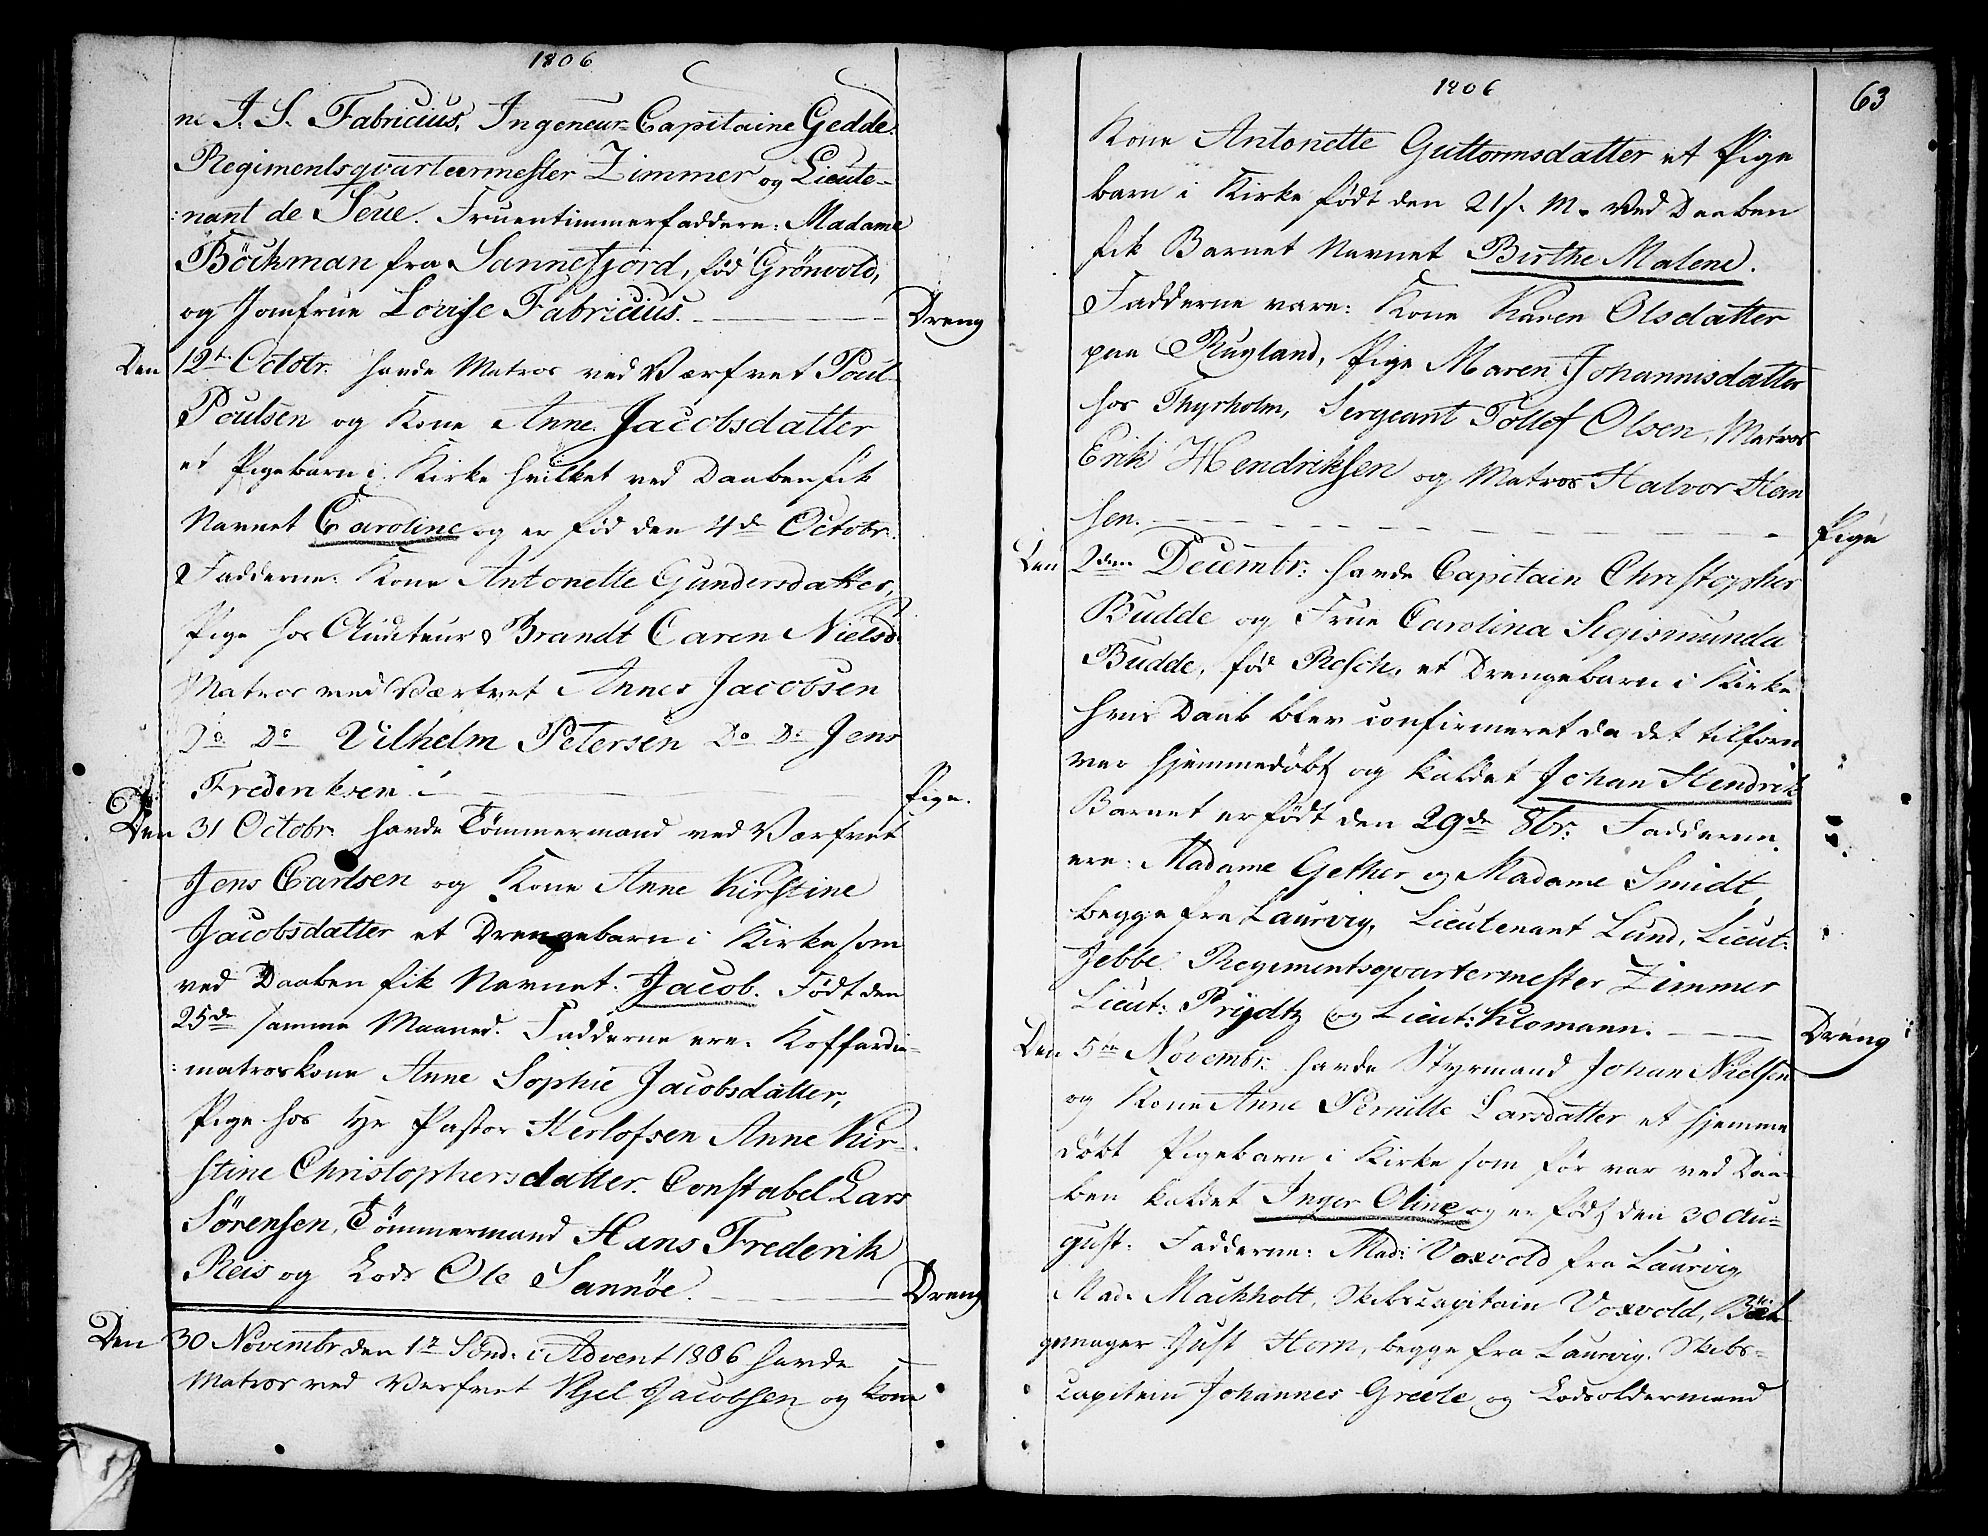 1806
ne J. S. Fabricius, Ingeneur-Capitaine Gedde.
Regimentsqvarteermester Zimmer og Lieute-
:nant de Seue. Fruentimmerfaddere: Madame
Böckman fra Sannefjord, föd Grönvold,
og Jomfrue Lovise Fabricius. Dreng
Den 12te Octobr. havde Matros ved Værfvet Poul
Poulsen og Kone Anne Jacobsdatter
et Pigebarn i Kirke hvilket ved Daaben fik
Navnet Caroline og er föd den 4de Octobr.
Fadderne: Kone Antonette Gundersdatter,
Pige hos Auditeur Brandt Caren Nielsd.
Matros ved Værfvet Annes Jacobsen
Do Do Vilhelm Petersen Do Do Jens
Frederiksen. Pige.
Den 31 Octobr. havde Tömmermand ved Værfvet
Jens Carlsen og Kone Anne Kirstine
Jacobsdatter et Drengebarn i Kirke som
ved Daaben fik Navnet Jacob. Födt den
25de samme Maaned. Fadderne ere: Koffardie-
:matroskone Anne Sophie Jacobsdatter,
Pige hos Hr Pastor Herlofsen Anne Kir-
stine Christophersdatter. Constabel Lars
Sörensen, Tömmermand Hans Frederik
Reis og Lods Ole Sannöe. Dreng
Den 30 Novembr den 1te Sönd. i Advent 1806 havde
Matros ved Verfvet Kjel Jacobsen og Kone
1806
63
Kone Antonette Guttormsdatter et Pige
barn i Kirke födt den 21/. M. Ved Daaben
fik Barnet Navnet Birthe Malene.
Fadderne vare: Kone Karen Olsdatter
paa Rugland, Pige Maren Johannisdatter
hos Thyrholm, Sergeant Tollef Olsen, Matros
Erik Hendriksen og Matros Halvor Han
sen. Pige
Den 2den Decembr: havde Capitain Christopher
Budde og Frue Carolina Sigismunda
Budde, föd Resch, et Drengebarn i Kirke
hvis Daab blev confirmeret da det tilforn
var hjemmedöbt og kaldet Johan Hendrik
Barnet er födt den 29de 8br. Fadderne
ere: Madame Gether og Madame Smidt,
begge fra Laurvig, Lieutenant Lund, Lieut:
Jebbe. Regimentsqvartermester Zimmer
Lieut: Prydtz og Lieut: Klomann. Dreng
Den 5te Novembr. havde Styrmand Johan Nielsen
og Kone Anne Pernille Larsdatter et hjemme
döbt Pigebarn i Kirke som för var ved Daa-
ben kaldet Inger Oline og er födt den 30 Au-
gust. Fadderne: Mad: Voxvold fra Laurvig,
Mad. Machholt, Skibscapitain Voxvold, Böt-
gemager Just Horn, begge fra Laurvig. Skibs-
Capitain Johannes Greele og Lodsoldermand